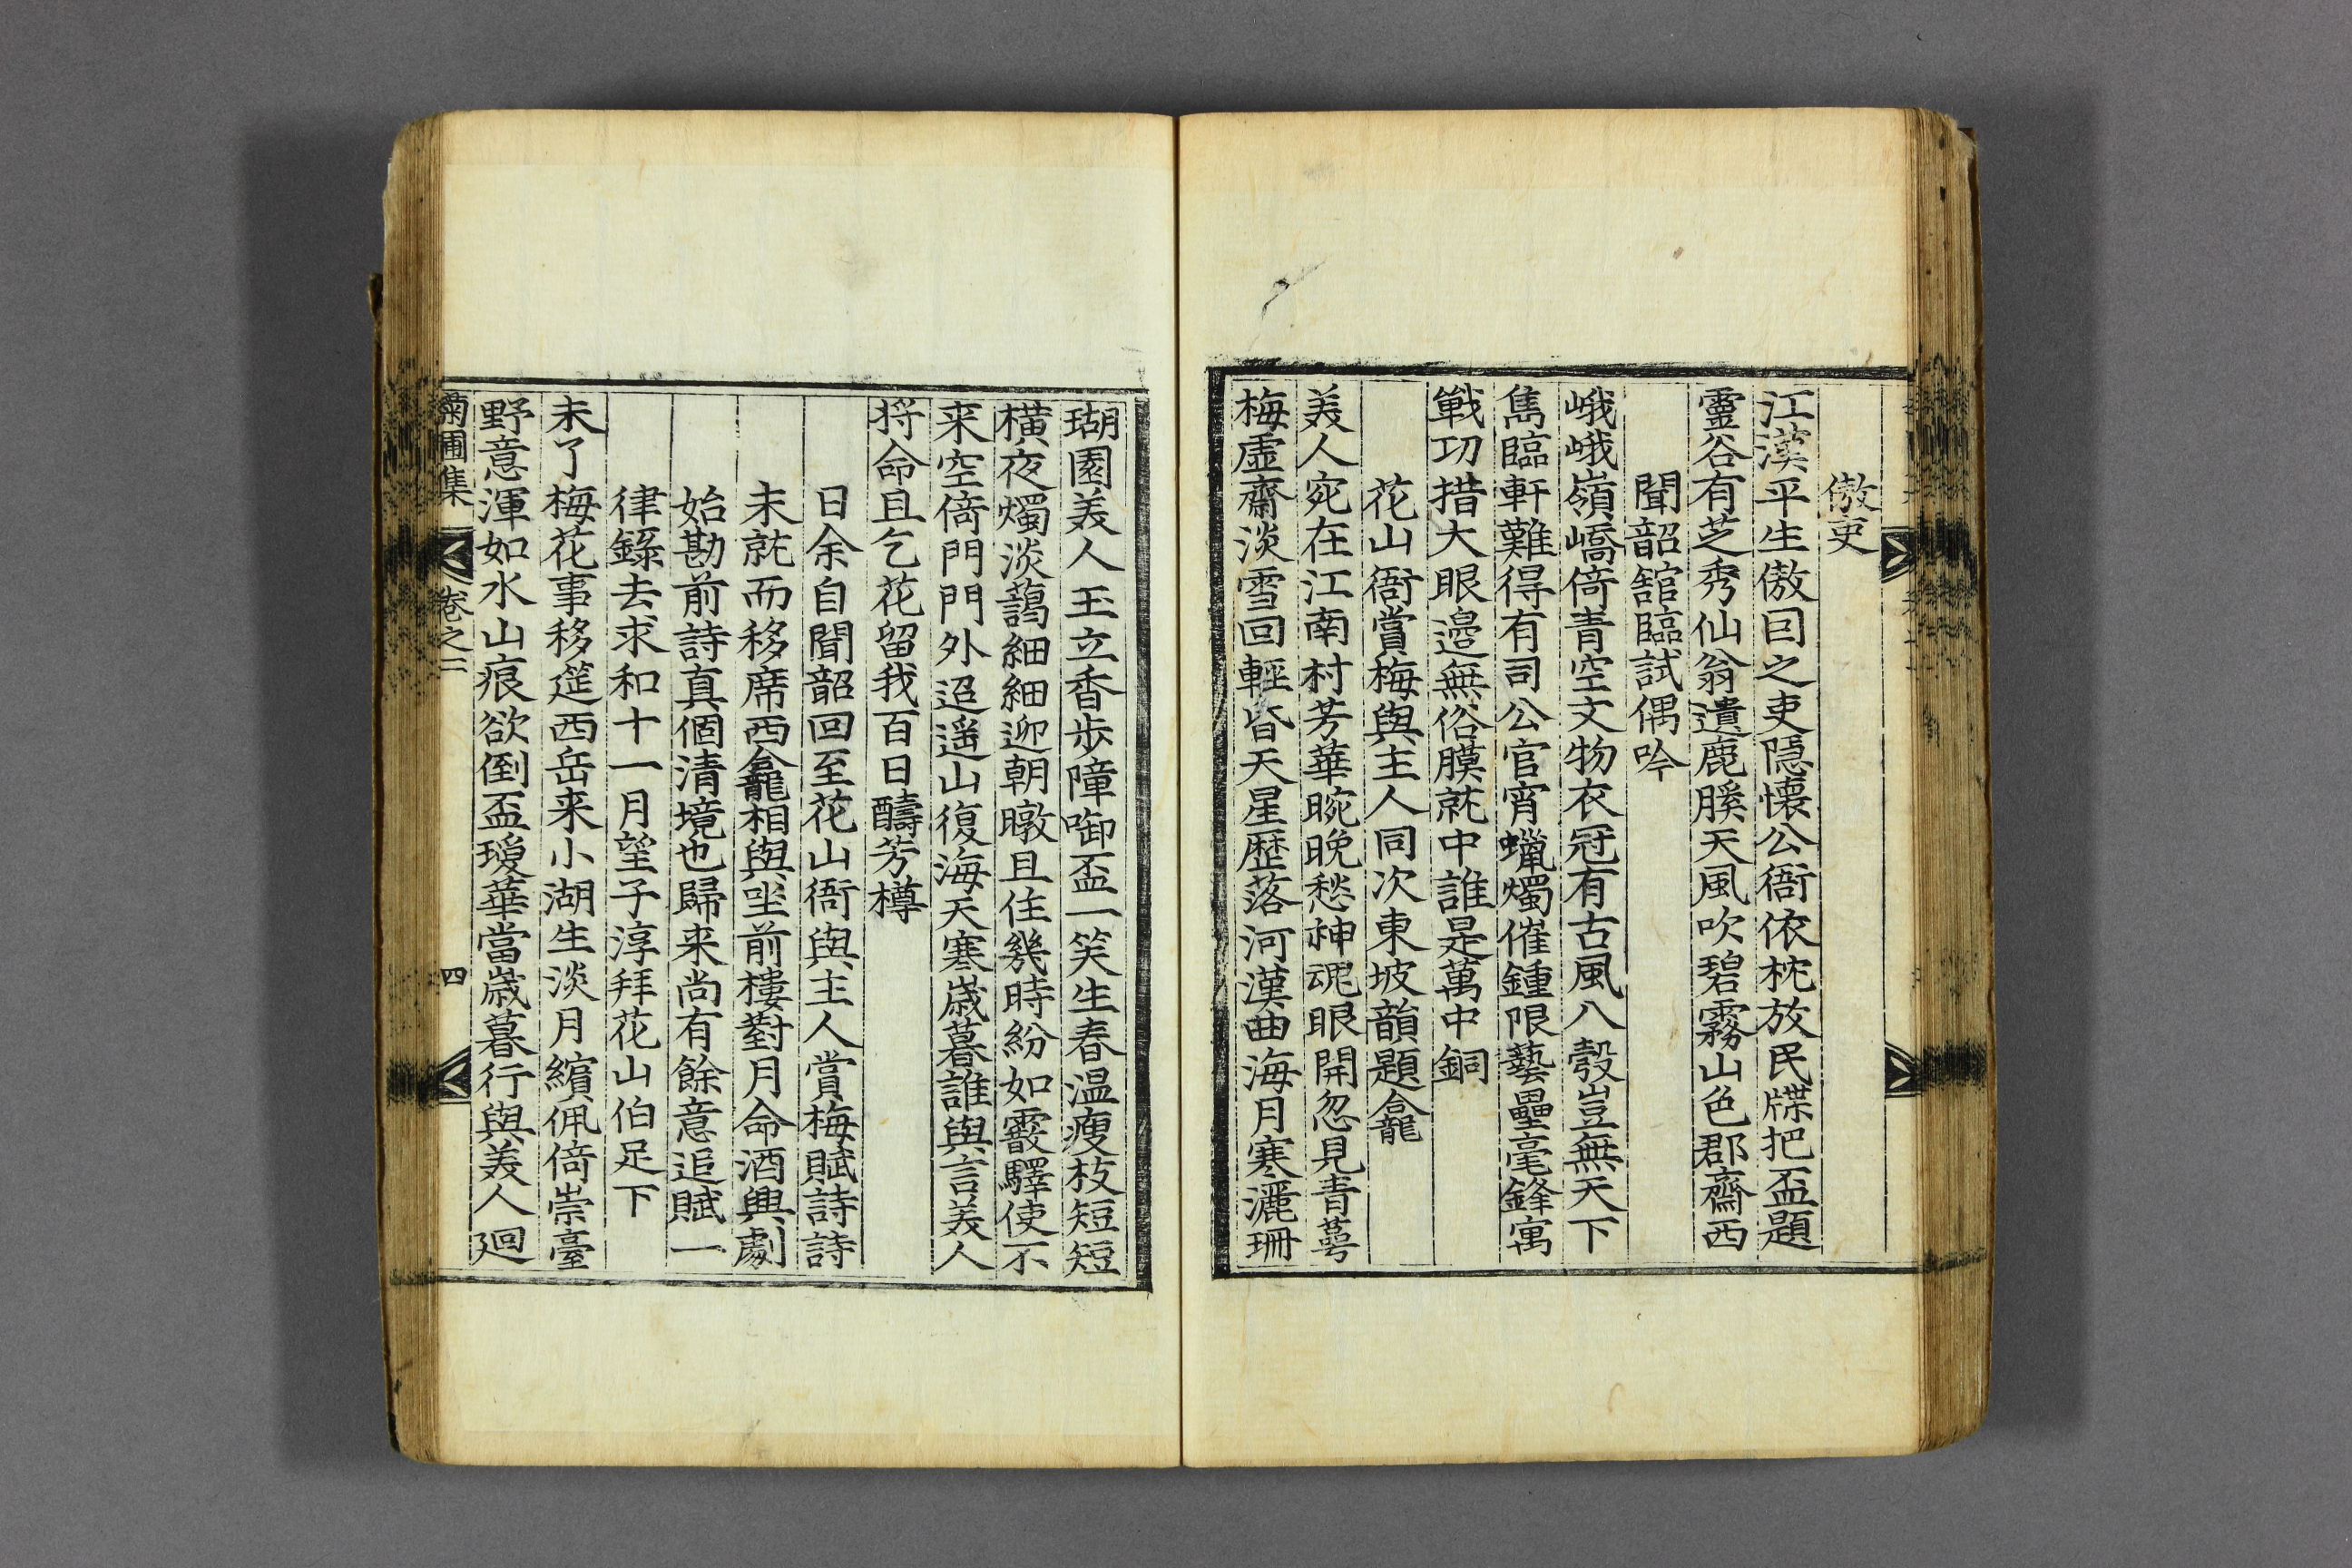 傲吏
江漢平生傲曰之吏隱懷公衙依枕放民牒把盃題
靈谷有芝秀仙翁遺鹿騤天風吹碧霧山色郡齋西
聞韶舘臨試偶吟
峨峨嶺嶠倚青空文物衣冠有古風八彀豈無天下
雋臨軒難得有司公官宵蠟燭催鍾限藝壘毫鋒寓
戰功措大眼邊無俗膜就中誰是萬中銅
花山衙賞梅與主人同次東坡韻題龕
美人宛在江南村芳華晼晚愁神魂眼開忽見青萼
梅虛齋淡雪回輕昏天星歷落河漢曲海月寒灑珊
瑚園美人玉立香步障啣盃一笑生春温瘦枝短短
橫夜燭淡藹細細迎朝暾且住幾時紛如霰驛使不
来空倚門門外迢遥山復海天寒歲暮誰與言美人
将命且乞花留我百日醻芳樽
日余自聞韶回至花山衙與主人賞梅賦詩詩
未就而移席西龕相與坐前樓對月命酒興劇
始勘前詩真個清境也歸来尚有餘意追賦一
律錄去求和十一月望子淳拜花山伯足下
未了梅花事移筵西岳来小湖生淡月繽佩倚崇臺
野意渾如水山痕欲倒盃瑷華當歲暮行與美人廻
菊圃集 卷之二 四